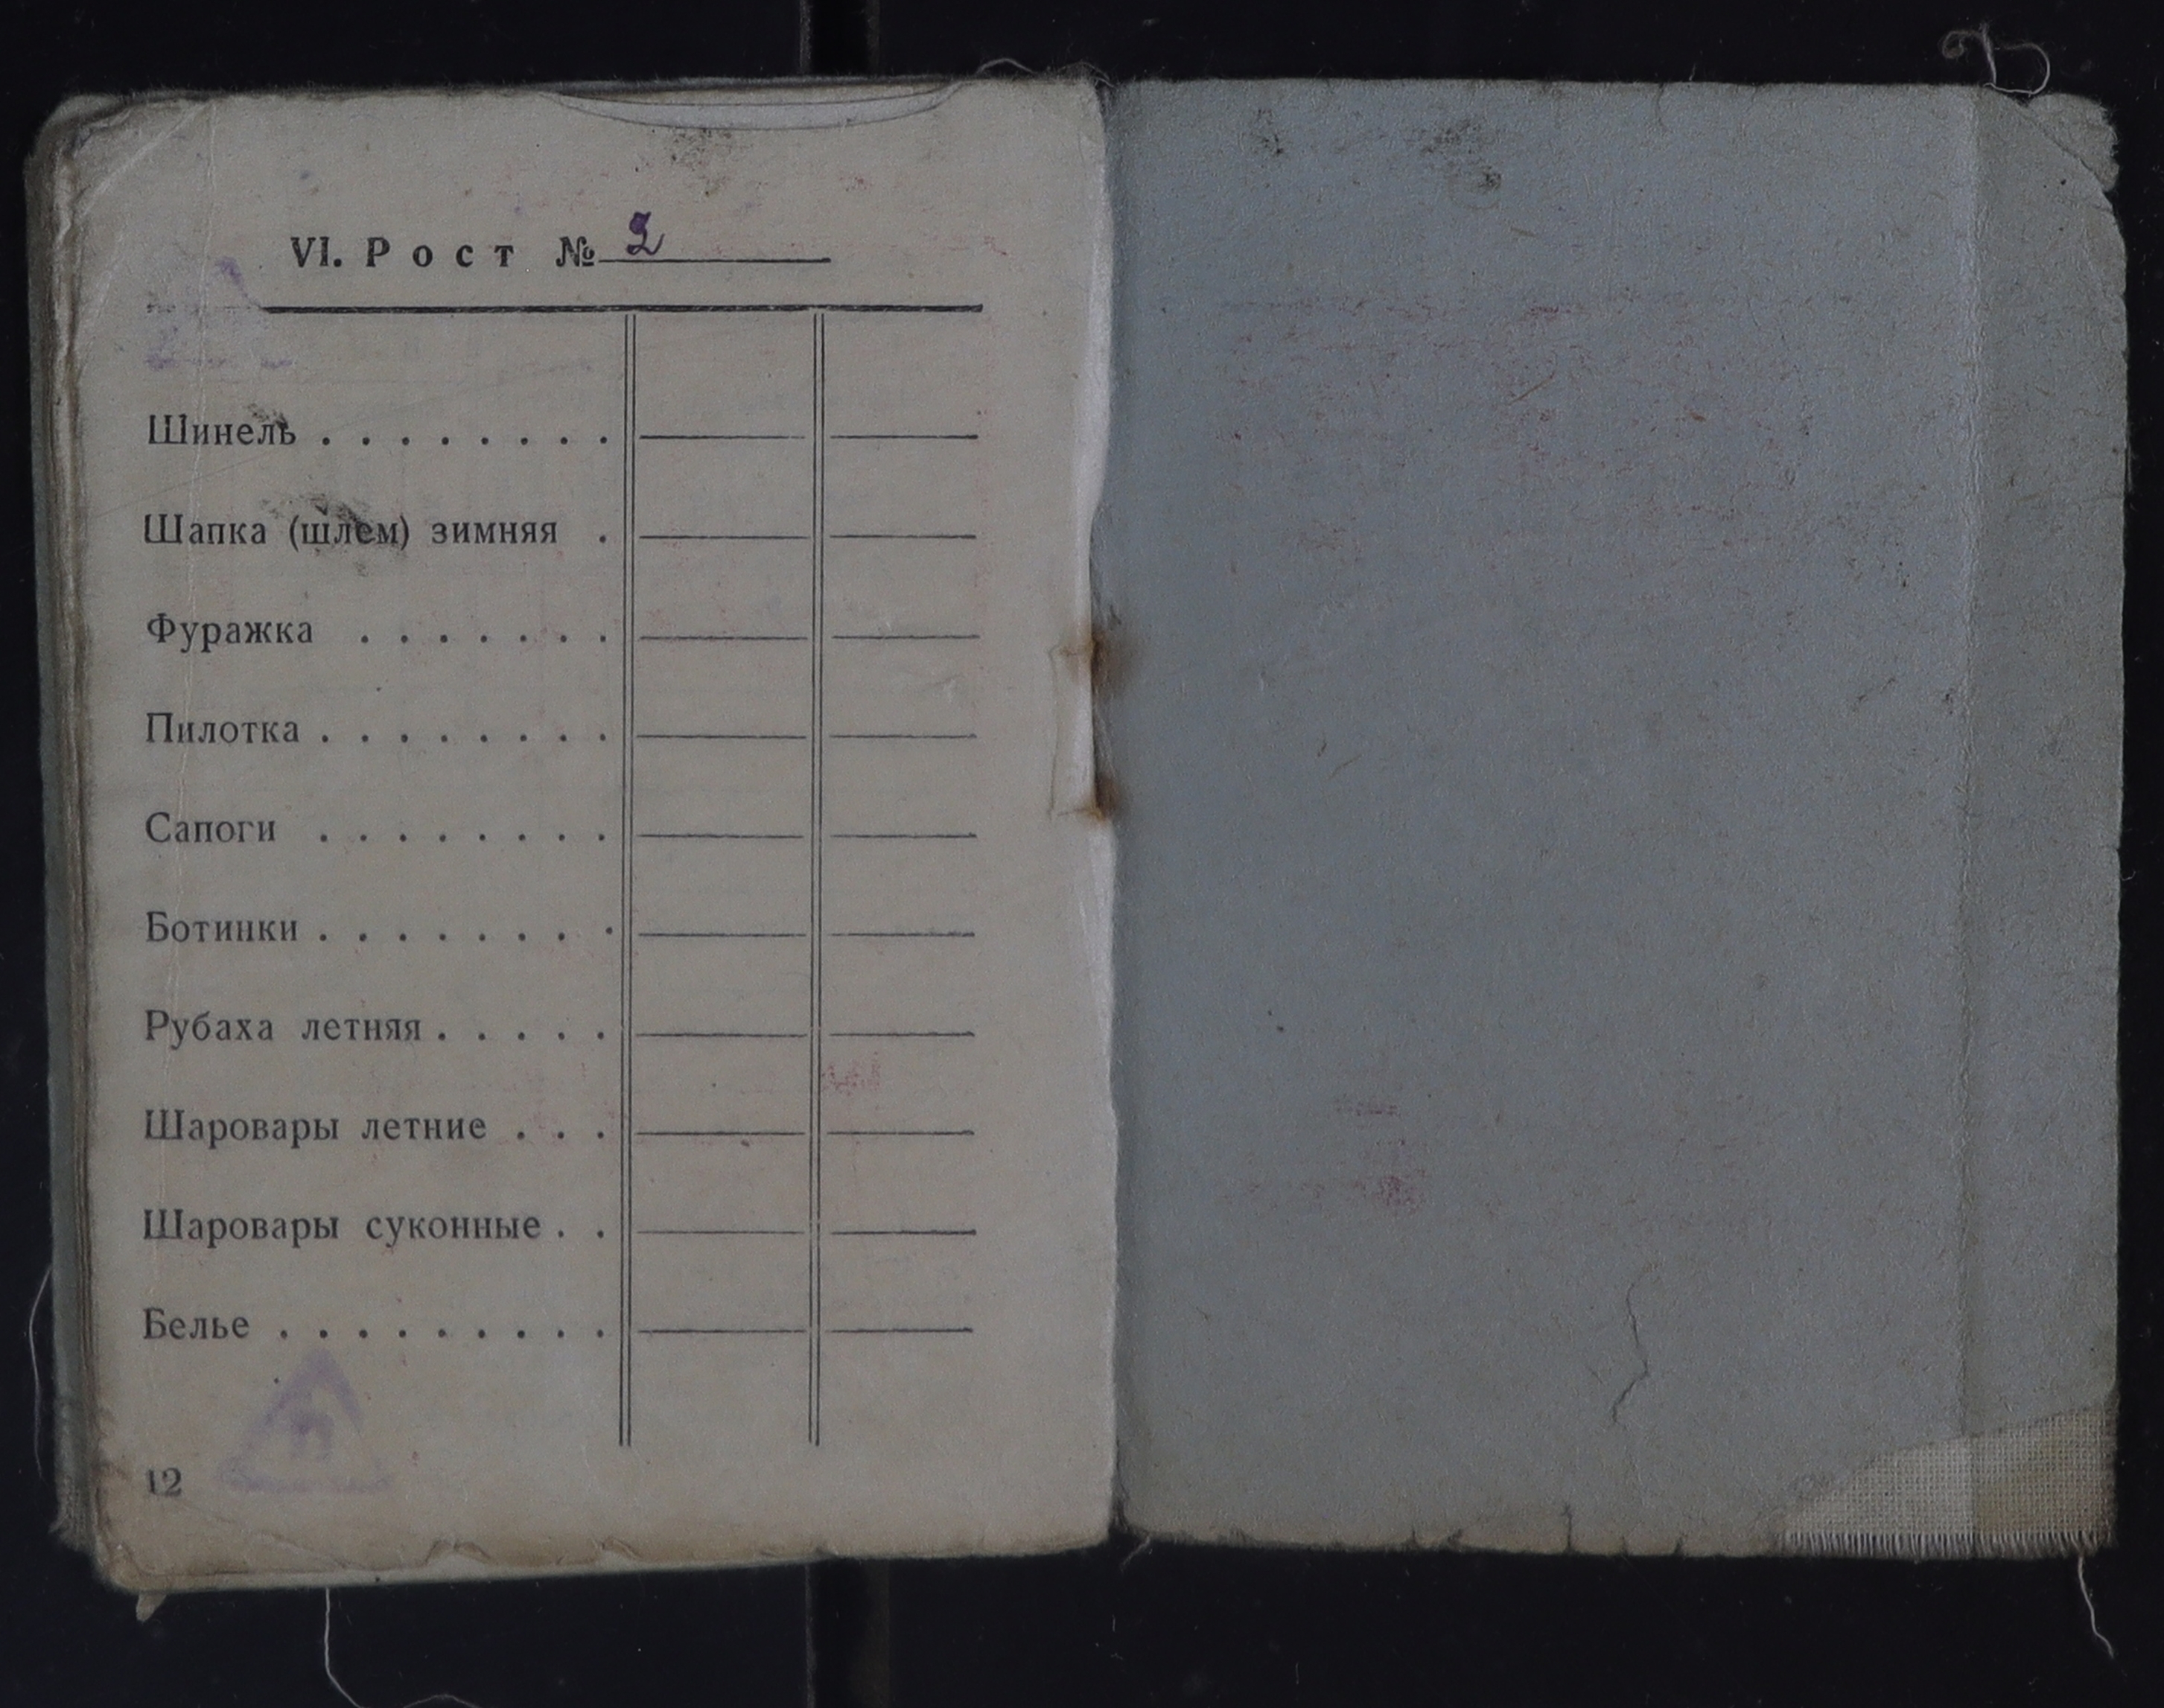 VI. Рост № 2
Шинель . . . . . . . .
Шапка (шлем) зимняя .
Фуражка . . . . . . .
Пилотка . . . . . . . .
Сапоги . . . . . . . .
Ботинки . . . . . . . .
Рубаха летняя . . . . .
Шаровары летние . . .
Шаровары суконные . .
Белье . . . . . . . . .
12